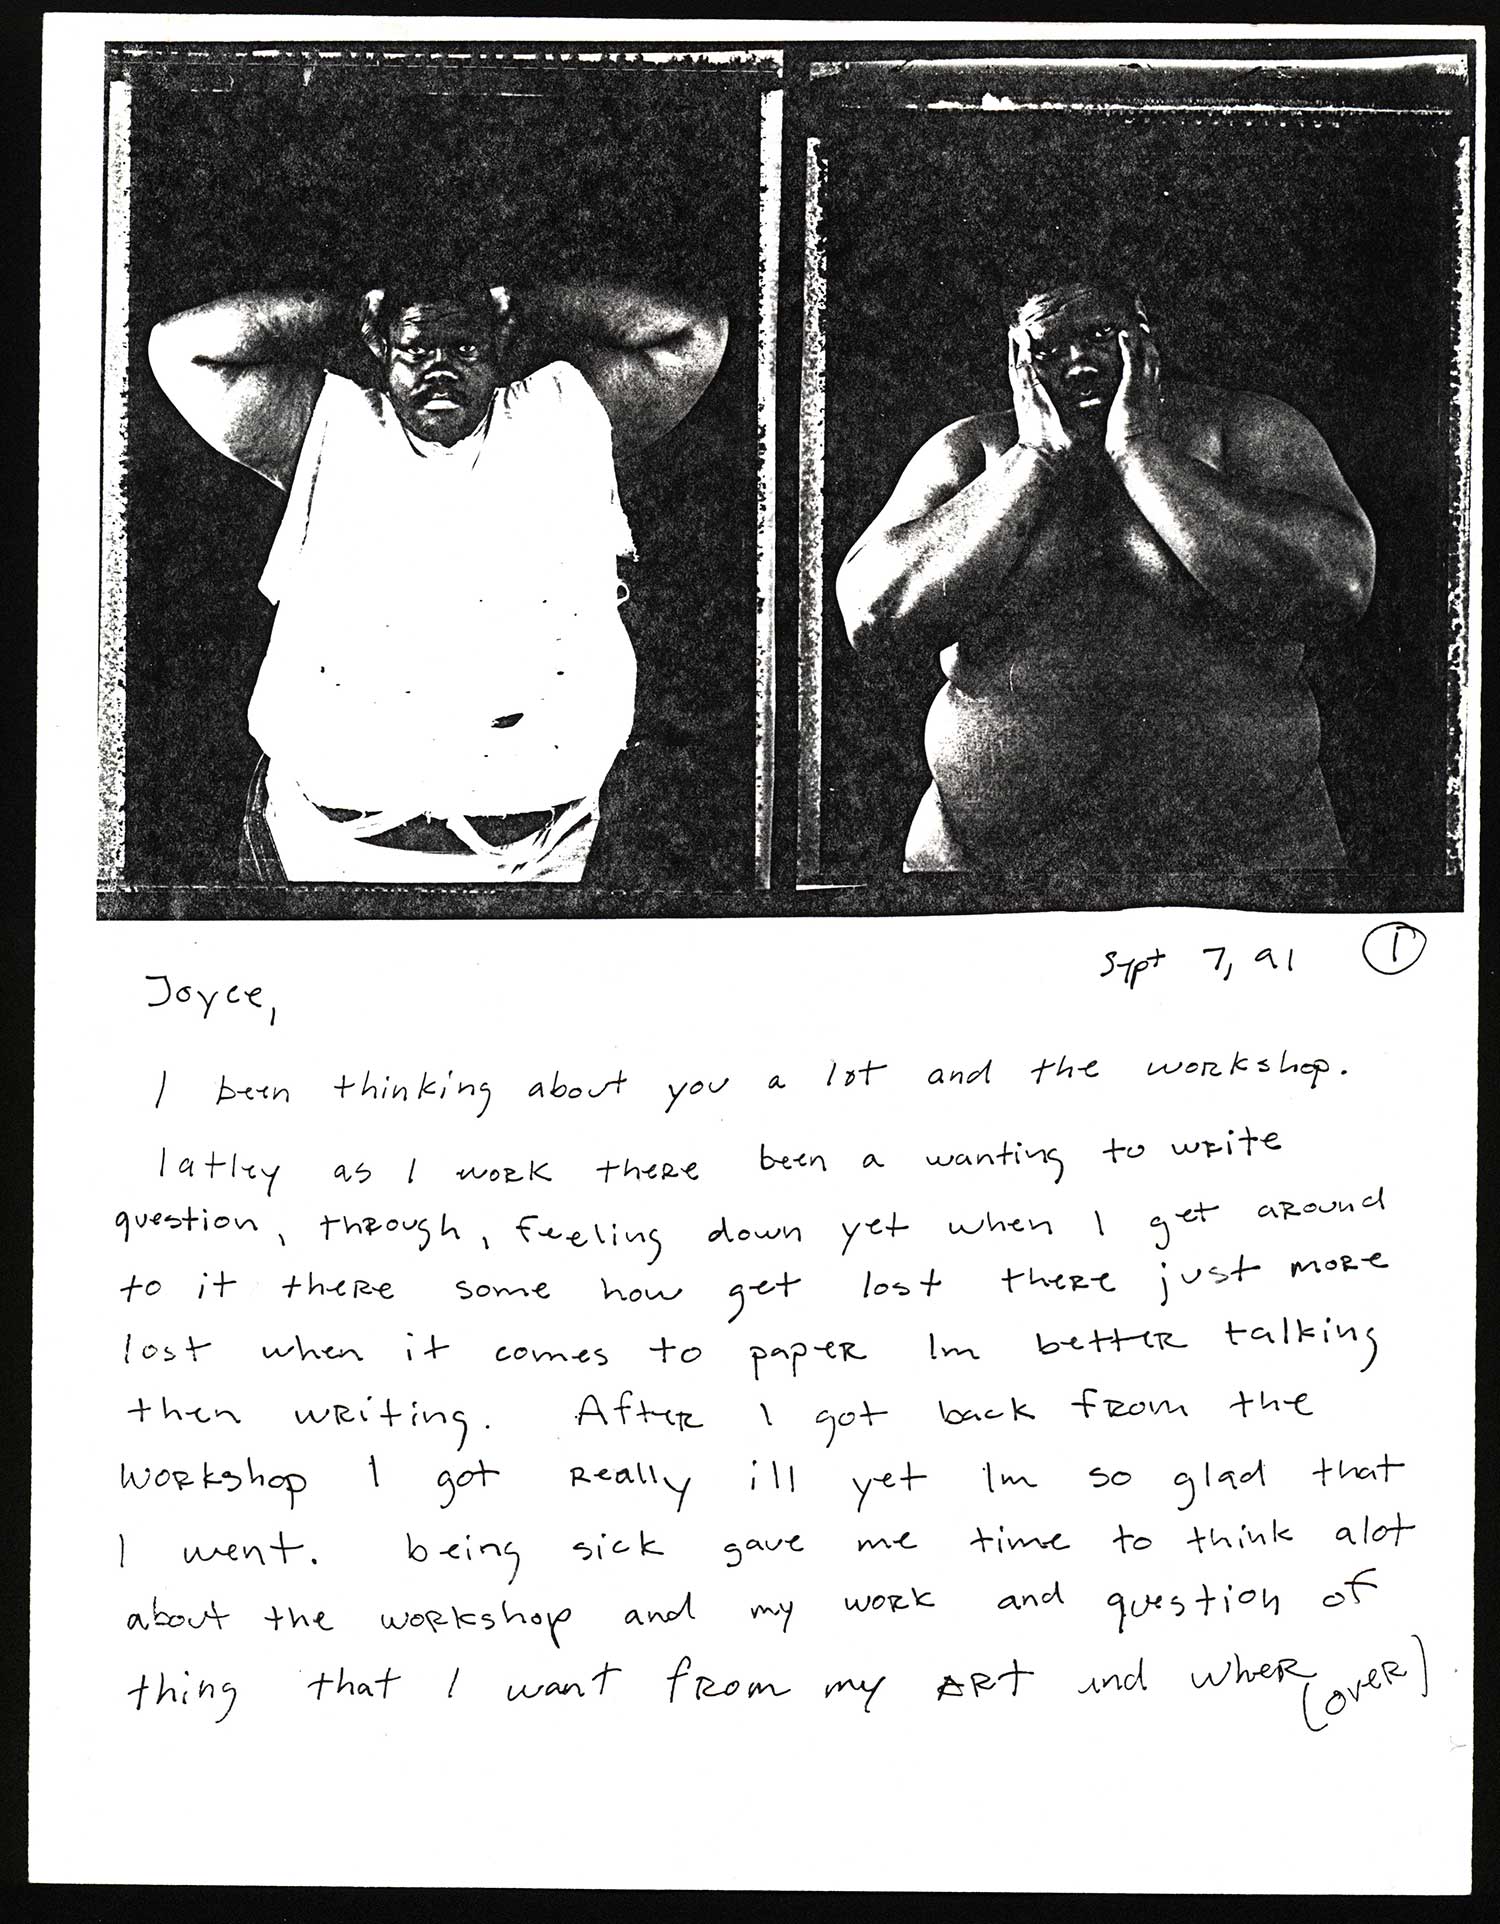 Sept 7, 91 ①
Joyce,
I been thinking about you a lot and the workshop.
latley as I work there been a wanting to write
question, through, feeling down yet when I get around
to it there some how get lost there just more
lost when it comes to paper Im better talking
then writing. After I got back from the
workshop I got really ill yet Im so glad that
I went. being sick gave me time to think alot
about the workshop and my work and question of
thing that I want from my ART and wher
(over)